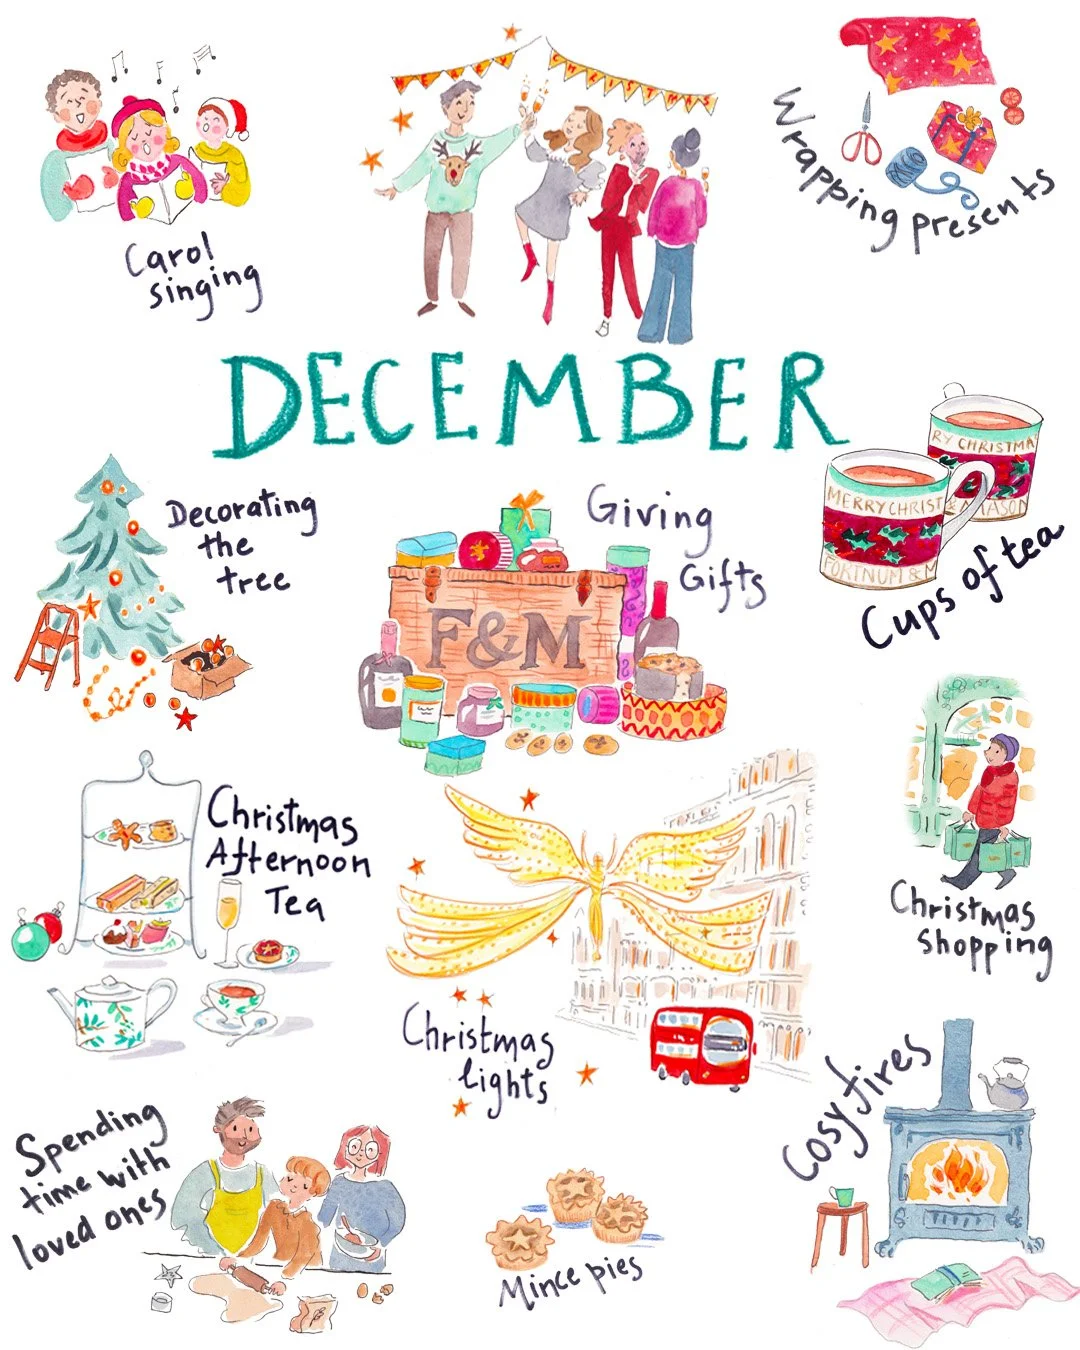 MERRY CHRISTMAS
Carol
singing
Wrapping presents
DECEMBER
Decorating
the
tree
Giving
Gifts
F&M
RY CHRISTMA
& MASON
MERRY CHRIST
FORTNUM & M
Cups of tea
Christmas
Afternoon
Tea
Christmas
Shopping
Christmas
lights
Cosy fires
Spending
time with
loved ones
Mince pies